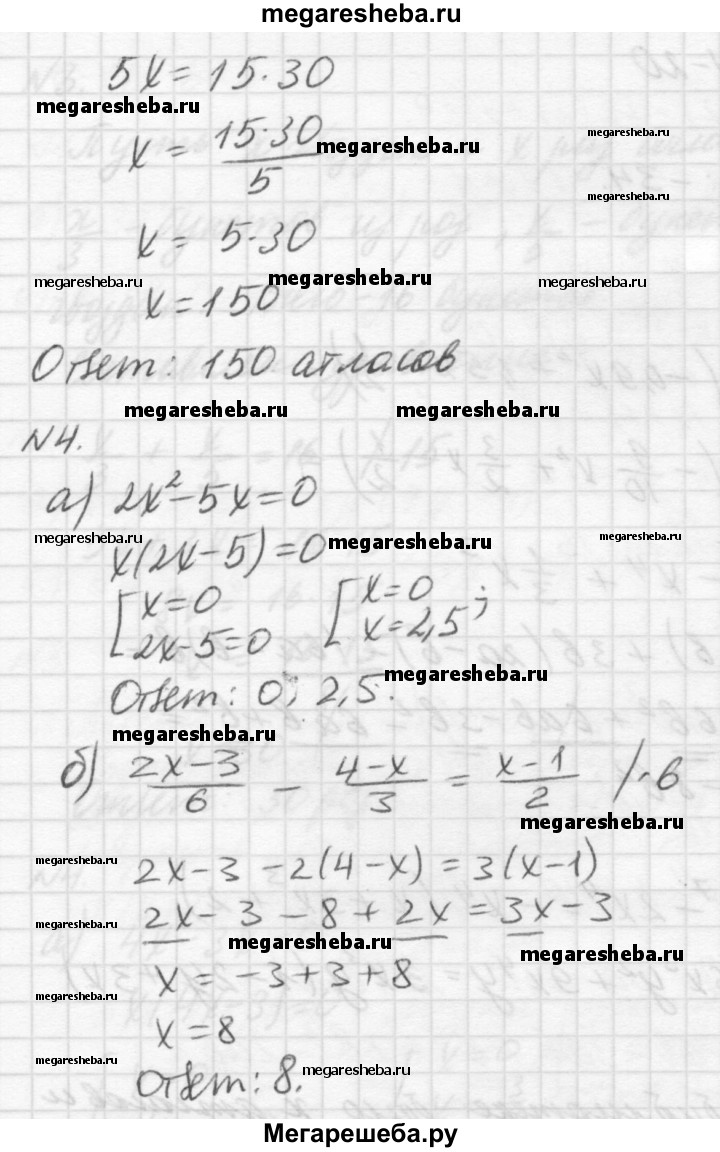 megaresheba.ru
5x = 15·30
megaresheba.ru
x = 15·30 / 5
megaresheba.ru
megaresheba.ru
megaresheba.ru
x = 5·30
megaresheba.ru
megaresheba.ru
megaresheba.ru
x = 150
Ответ: 150 атласов
megaresheba.ru
megaresheba.ru
№4.
а) 2x² − 5x = 0
megaresheba.ru
x(2x − 5) = 0
megaresheba.ru
megaresheba.ru
[ x = 0 [ x = 0
2x − 5 = 0 x = 2,5 ;
megaresheba.ru
Ответ: 0; 2,5.
megaresheba.ru
б) (2x − 3)/6 − (4 − x)/3 = (x − 1)/2 /·6
megaresheba.ru
megaresheba.ru
2x − 3 − 2(4 − x) = 3(x − 1)
megaresheba.ru
2x − 3 − 8 + 2x = 3x − 3
megaresheba.ru
megaresheba.ru
x = −3 + 3 + 8
megaresheba.ru
x = 8
megaresheba.ru
Ответ: 8.
megaresheba.ru
Мегарешеба.ру